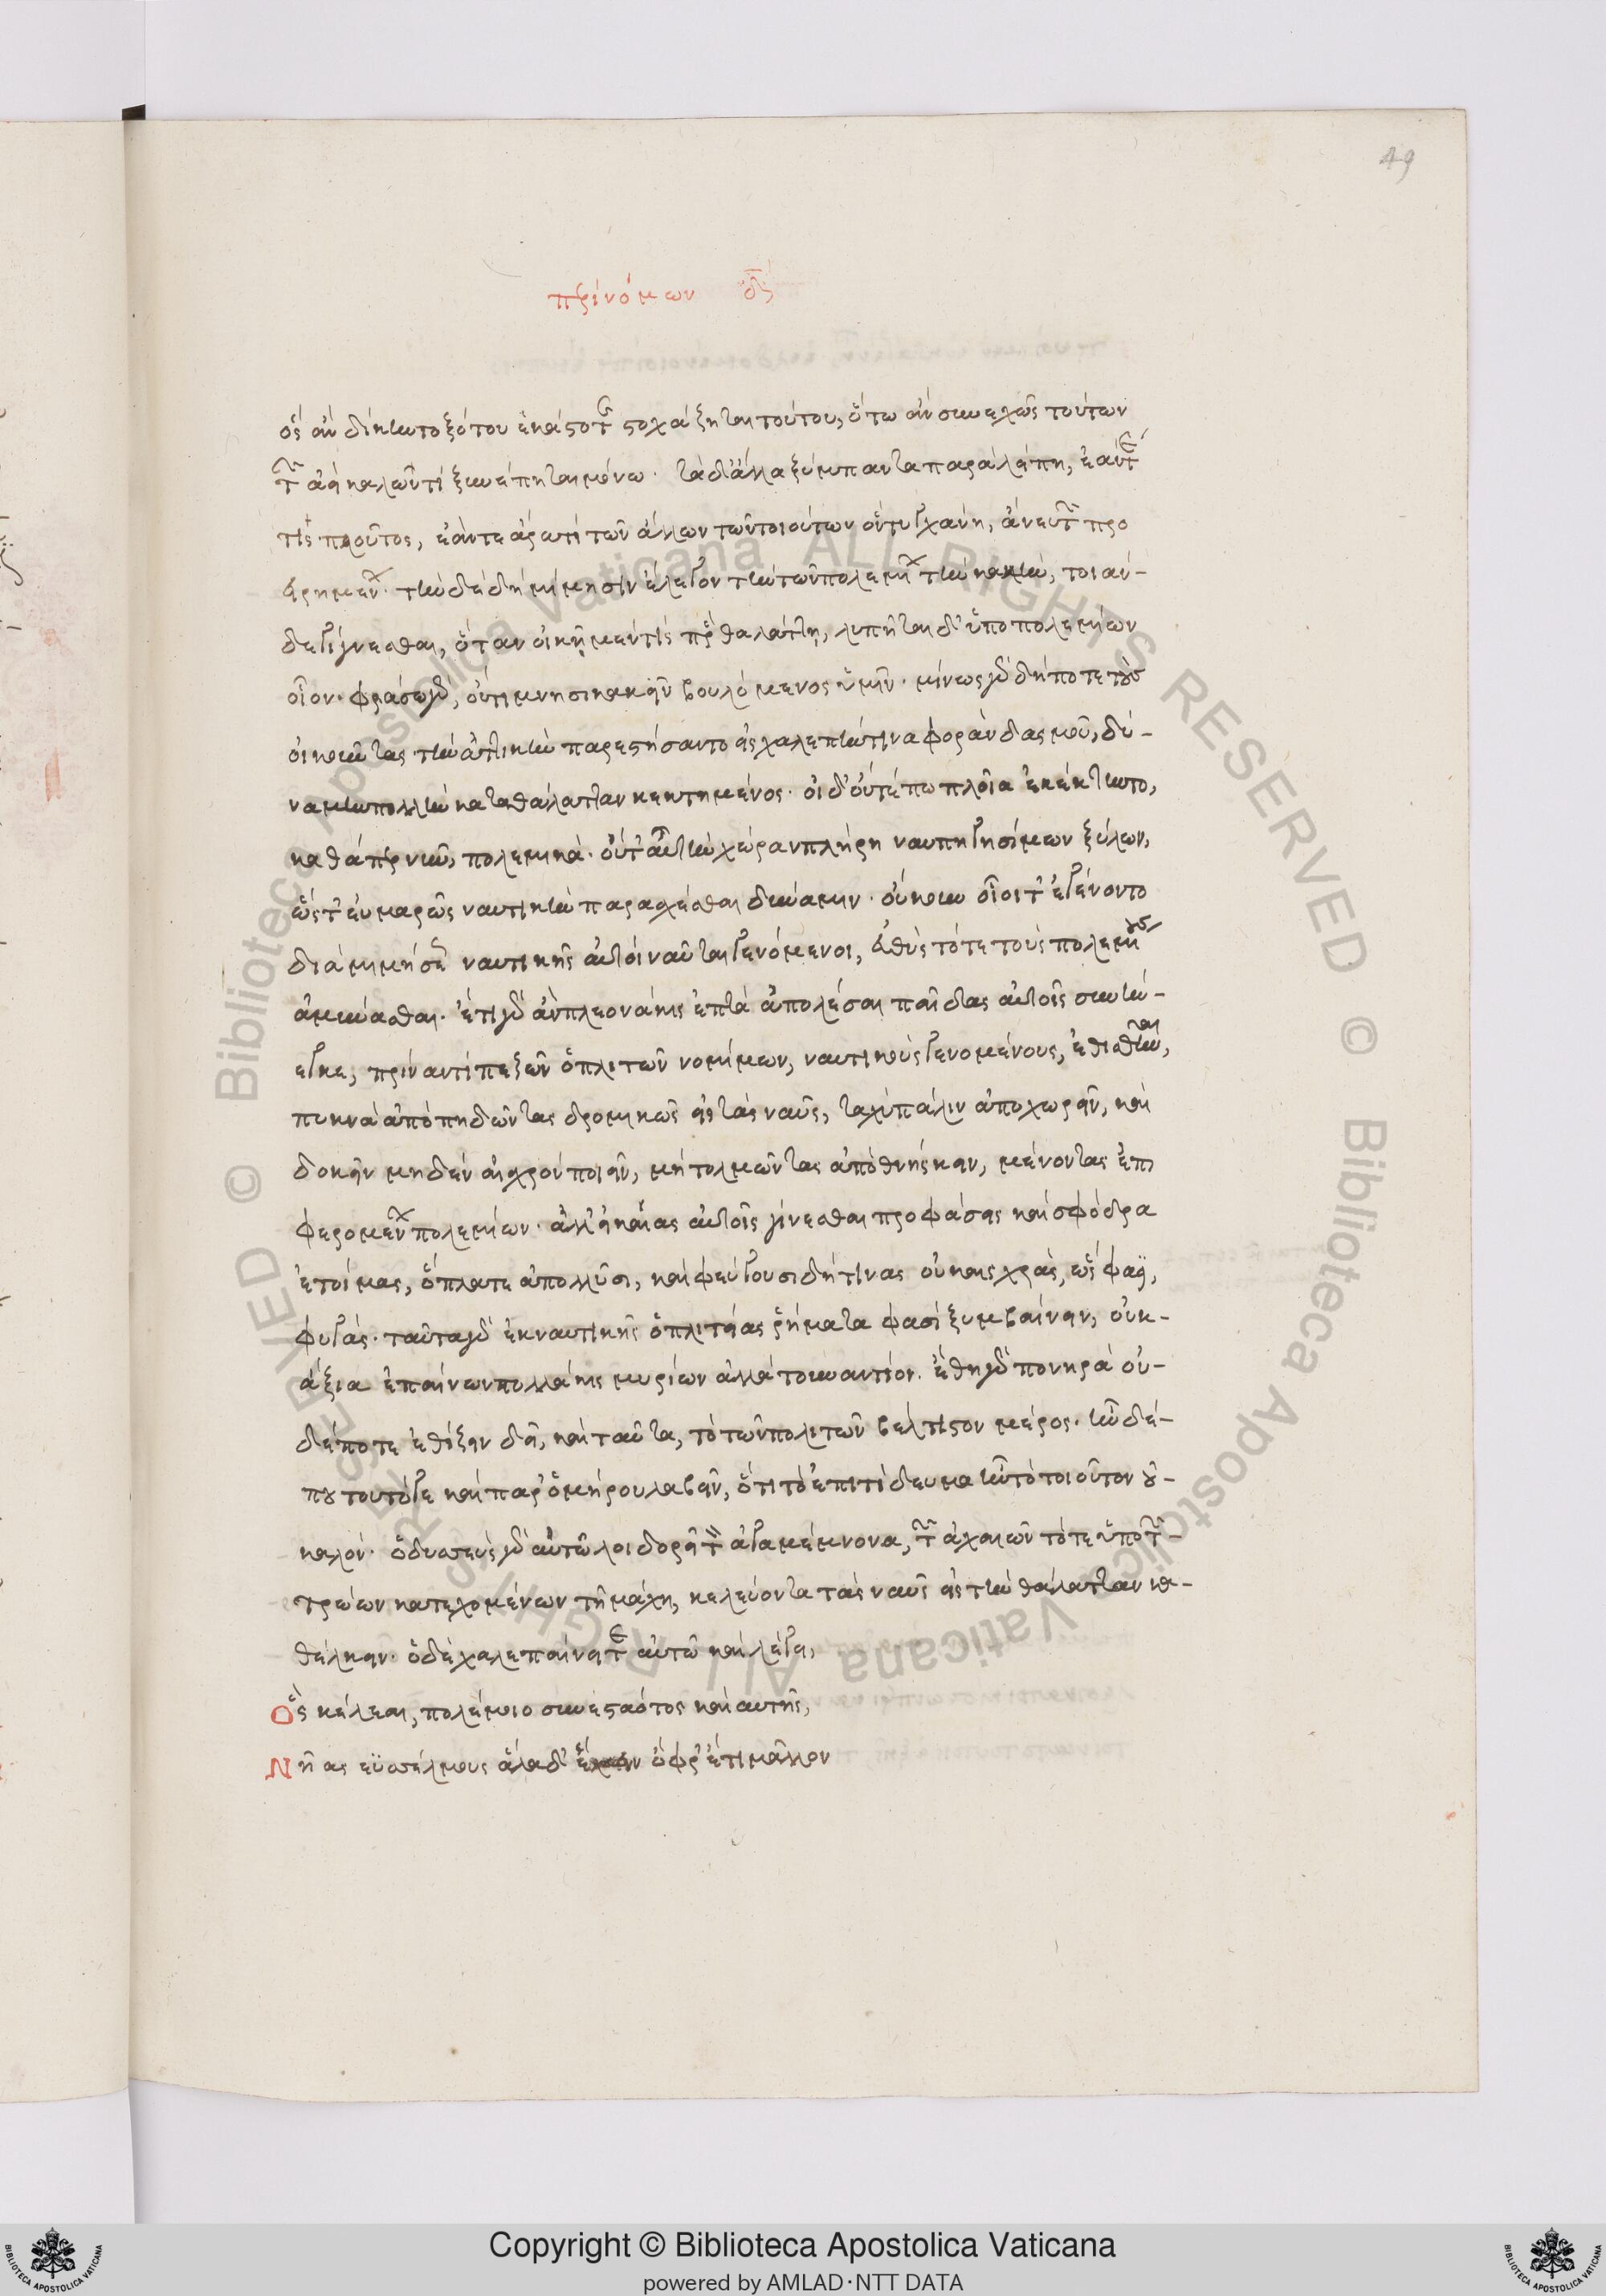 49
περὶ νόμων δ´
ὃς ἂν δίκην τοξότου ἑκάστοτε στοχάζηται τούτου, ὅτω ἂν συνεχῶς τούτων
τῶν ἀεὶ καλῶν τι ξυνέπηται μόνω. τὰ δ' ἄλλα ξύμπαντα παραλείπη, ἐάντε
τις πλοῦτος, ἐάντε ἄρα τι τῶν ἄλλων τῶν τοιούτων ὂν τυγχάνη, ἄνευ τῶν προ
ειρημένων. τὴν δὲ δὴ μίμησιν ἔλεγον τὴν τῶν πολεμίων τὴν κακὴν, τοιάν-
δε γίγνεσθαι, ὅταν οἰκῆ μέν τις πρὸς θαλάττη, λυπῆται δ' ὑπὸ πολεμίων
οἷον. φράσω γὰρ, οὔτι μνησικακεῖν βουλόμενος ὑμῖν. μίνως γὰρ δή ποτε τοὺς
οἰκοῦντας τὴν ἀττικὴν παρεστήσαντο εἰς χαλεπήν τινα φορὰν δασμοῦ, δύ-
ναμιν πολλὴν κατὰ θάλατταν κεκτημένος. οἱ δ' οὔτέ πω πλοῖα ἐκέκτηντο,
καθάπερ νῦν, πολεμικά. οὔτ' αὖ τὴν χώραν πλήρη ναυπηγησίμων ξύλων,
ὥστ' εὐμαρῶς ναυτικὴν παρασχέσθαι δύναμιν. οὔκουν οἷοί τ' ἐγένοντο
διὰ μιμήσεως ναυτικῆς αὐτοὶ ναῦται γενόμενοι, εὐθὺς τότε τοὺς πολεμίους
ἀμύνασθαι. ἔτι γὰρ ἂν πλεονάκις ἑπτὰ ἀπολέσαι παῖδας αὐτοῖς συνή-
νεγκε, πρὶν ἀντὶ πεζῶν ὁπλιτῶν νομίμων, ναυτικοὺς γενομένους, ἐθισθῆναι,
πυκνὰ ἀποπηδῶντας δρομικῶς εἰς τὰς ναῦς, ταχὺ πάλιν ἀποχωρεῖν, καὶ
δοκεῖν μηδὲν αἰσχρὸν ποιεῖν, μὴ τολμῶντας ἀποθνήσκειν, μένοντας ἐπι
φερομένων πολεμίων. ἀλλ' εἰκυίας αὐτοῖς γίνεσθαι προφάσεις καὶ σφόδρα
ἑτοίμας, ὅπλα τε ἀπολλῦσι, καὶ φεύγουσι δή τινας οὐκ αἰσχρὰς, ὥς φασι,
φυγάς. ταῦτα γὰρ ἐκ ναυτικῆς ὁπλιτείας ῥήματα φασὶ ξυμβαίνειν, οὐκ-
ἄξια ἐπαίνων πολλάκις μυρίων ἀλλὰ τοὐναντίον. ἔθη γὰρ πονηρὰ οὐ-
δέποτε ἐθίζειν δεῖ, καὶ ταῦτα, τὸ τῶν πολιτῶν βέλτιστον μέρος. ἦν δέ-
που τοῦτό γε καὶ παρ' ὁμήρου λαβεῖν, ὅτι τὸ ἐπιτήδευμα ἦν τὸ τοιοῦτον οὐ-
καλόν. ὀδυσσεὺς γὰρ αὐτῶ λοιδορεῖ τὸν ἀγαμέμνονα, τῶν ἀχαιῶν τότε ὑπὸ τῶν-
τρώων κατεχομένων τῆ μάχη, κελεύοντα τὰς ναῦς εἰς τὴν θάλατταν κα-
θέλκειν. ὁ δὲ χαλεπαίνει τε αὐτῶ καὶ λέγει,
Ὃς κέλεαι, πολέμοιο συνεσταότος καὶ αυτῆς,
Νῆας εϋσσέλμους ἅλαδ' ὄφρ' ἔτι μᾶλλον